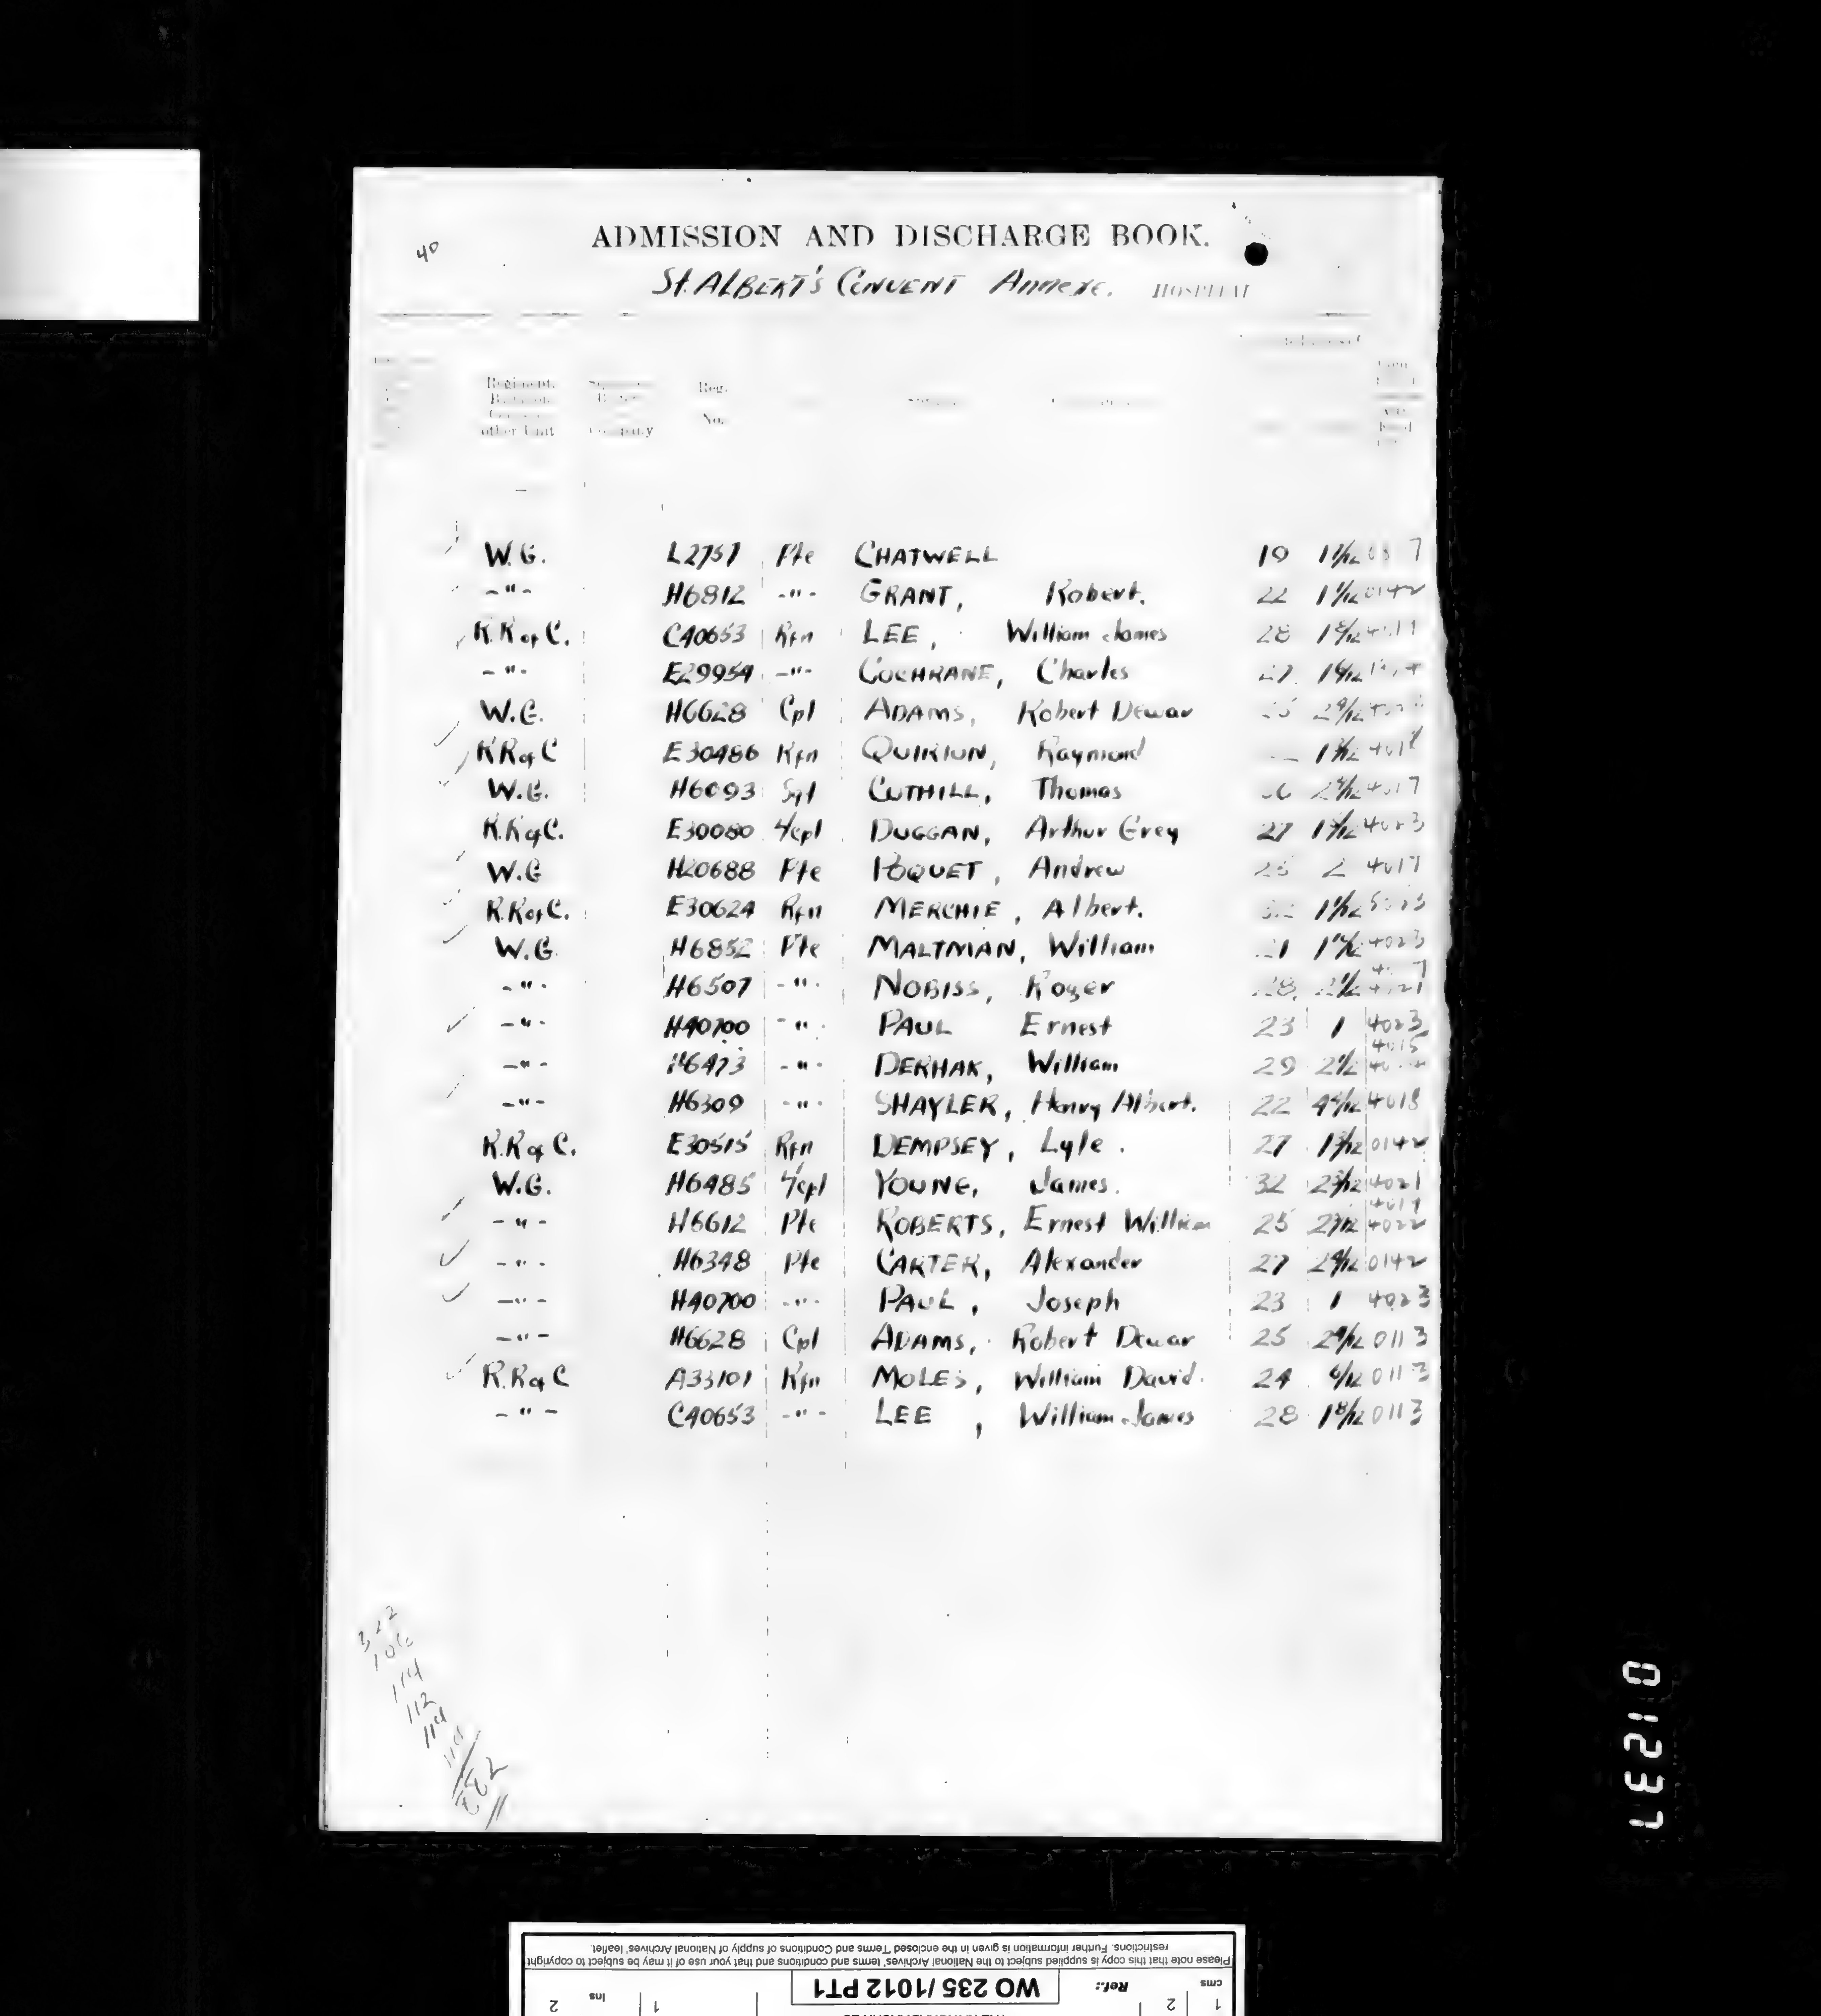 40
ADMISSION AND DISCHARGE BOOK.
St. ALBERT'S CONVENT Annexe. HOSPITAL
Regiment. Reg.
No.
other Unit Company
W.G. L2757 Pte CHATWELL 19
-"- H6812 -"- GRANT, Robert. 22 0142
R.R of C. C40653 Rfn LEE, William James 28 1 8/12
-"- E29954 -"- COCHRANE, Charles
W.G. H6628 Cpl ADAMS, Robert Dewar 2 9/12
R R of C E30486 Rfn QUIRION, Raymond
W.G. H6093 Sgt CUTHILL, Thomas 4017
R.R of C. E30080 L/Cpl DUGGAN, Arthur Grey 27 4023
W.G H20688 Pte POQUET, Andrew 2 4017
R.R of C. E30624 Rfn MERCHIE, Albert.
W.G. H6852 Pte MALTMAN, William 4023
-"- H6507 -"- NOBISS, Roger 28
-"- H40700 -"- PAUL Ernest 23 1 4023
4015
-"- H6473 -"- DERHAK, William 29
-"- H6309 -"- SHAYLER, Henry Albert. 22 4018
R.R of C. E30515 Rfn DEMPSEY, Lyle. 27 0142
W.G. H6485 L/Cpl YOUNG, James. 32 4021
4019
-"- H6612 Pte ROBERTS, Ernest William 25 4022
-"- H6348 Pte CARTER, Alexander 27 0142
-"- H40700 -"- PAUL, Joseph 23 1 4023
-"- H6628 Cpl ADAMS, Robert Dewar 25 2 9/12 0113
R.R of C A33101 Rfn MOLES, William David. 24 6/12 0113
-"- C40653 -"- LEE, William James 28 1 8/12 0113
322
106
114
112
114
114
882
01237
Please note that this copy is supplied subject to the National Archives' terms and conditions and that your use of it may be subject to copyright
restrictions. Further information is given in the enclosed 'Terms and Conditions of supply of National Archives' leaflet.
cms 1 2 Ref.: WO 235/1012 PT1 1 Ins 2